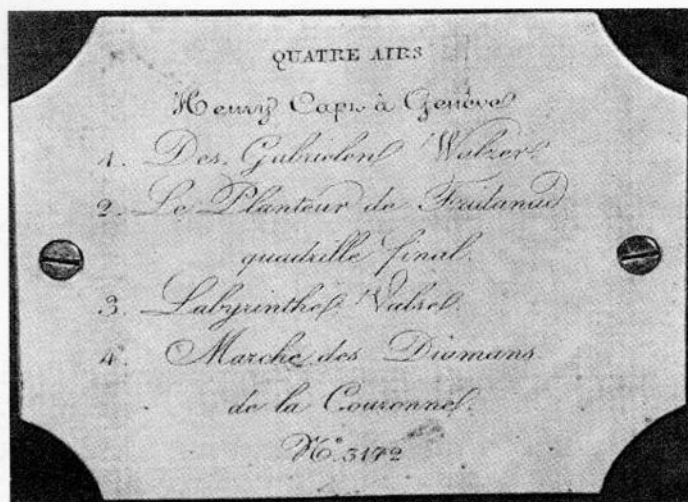 QUATRE AIRS
Henry Capt à Genève
1. Des Gabrielen Walzer.
2. Le Planteur de
quadrille final.
3. Labyrinthe Valse.
4. Marche des Diamans
de la Couronne.
No. 3172